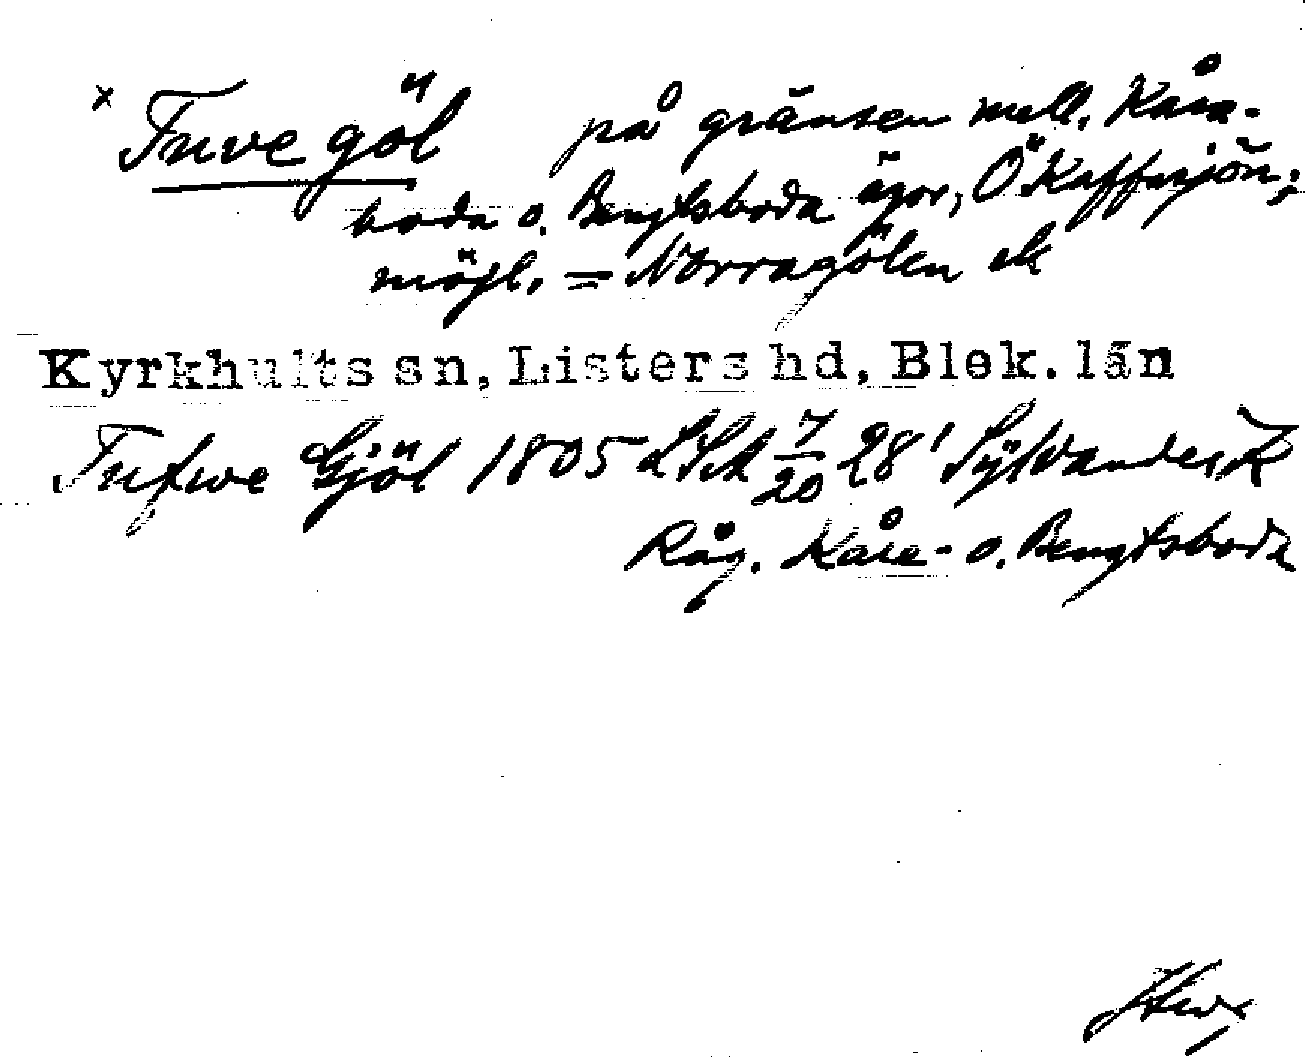 x Tuve göl på gränsen mell. Kåra-
boda o. Bengtsboda ägor, Ö Kaffasjön;
möjl. = Norragölen ek
Kyrkhults sn, Listers hd, Blek. län
Tufwe Gjöl 1805 LSA 7/20 28' Sylvander K
Råg. Kåre- o. Bengtsboda